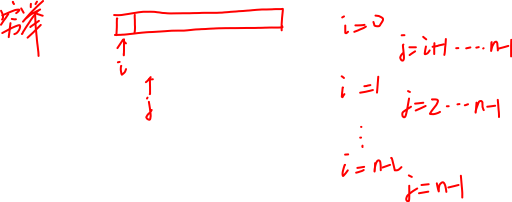 穷举
i
j
i=0
j=i+1 ····· n-1
i=1
j=2 ··· n-1
⋮
i=n-2
j=n-1